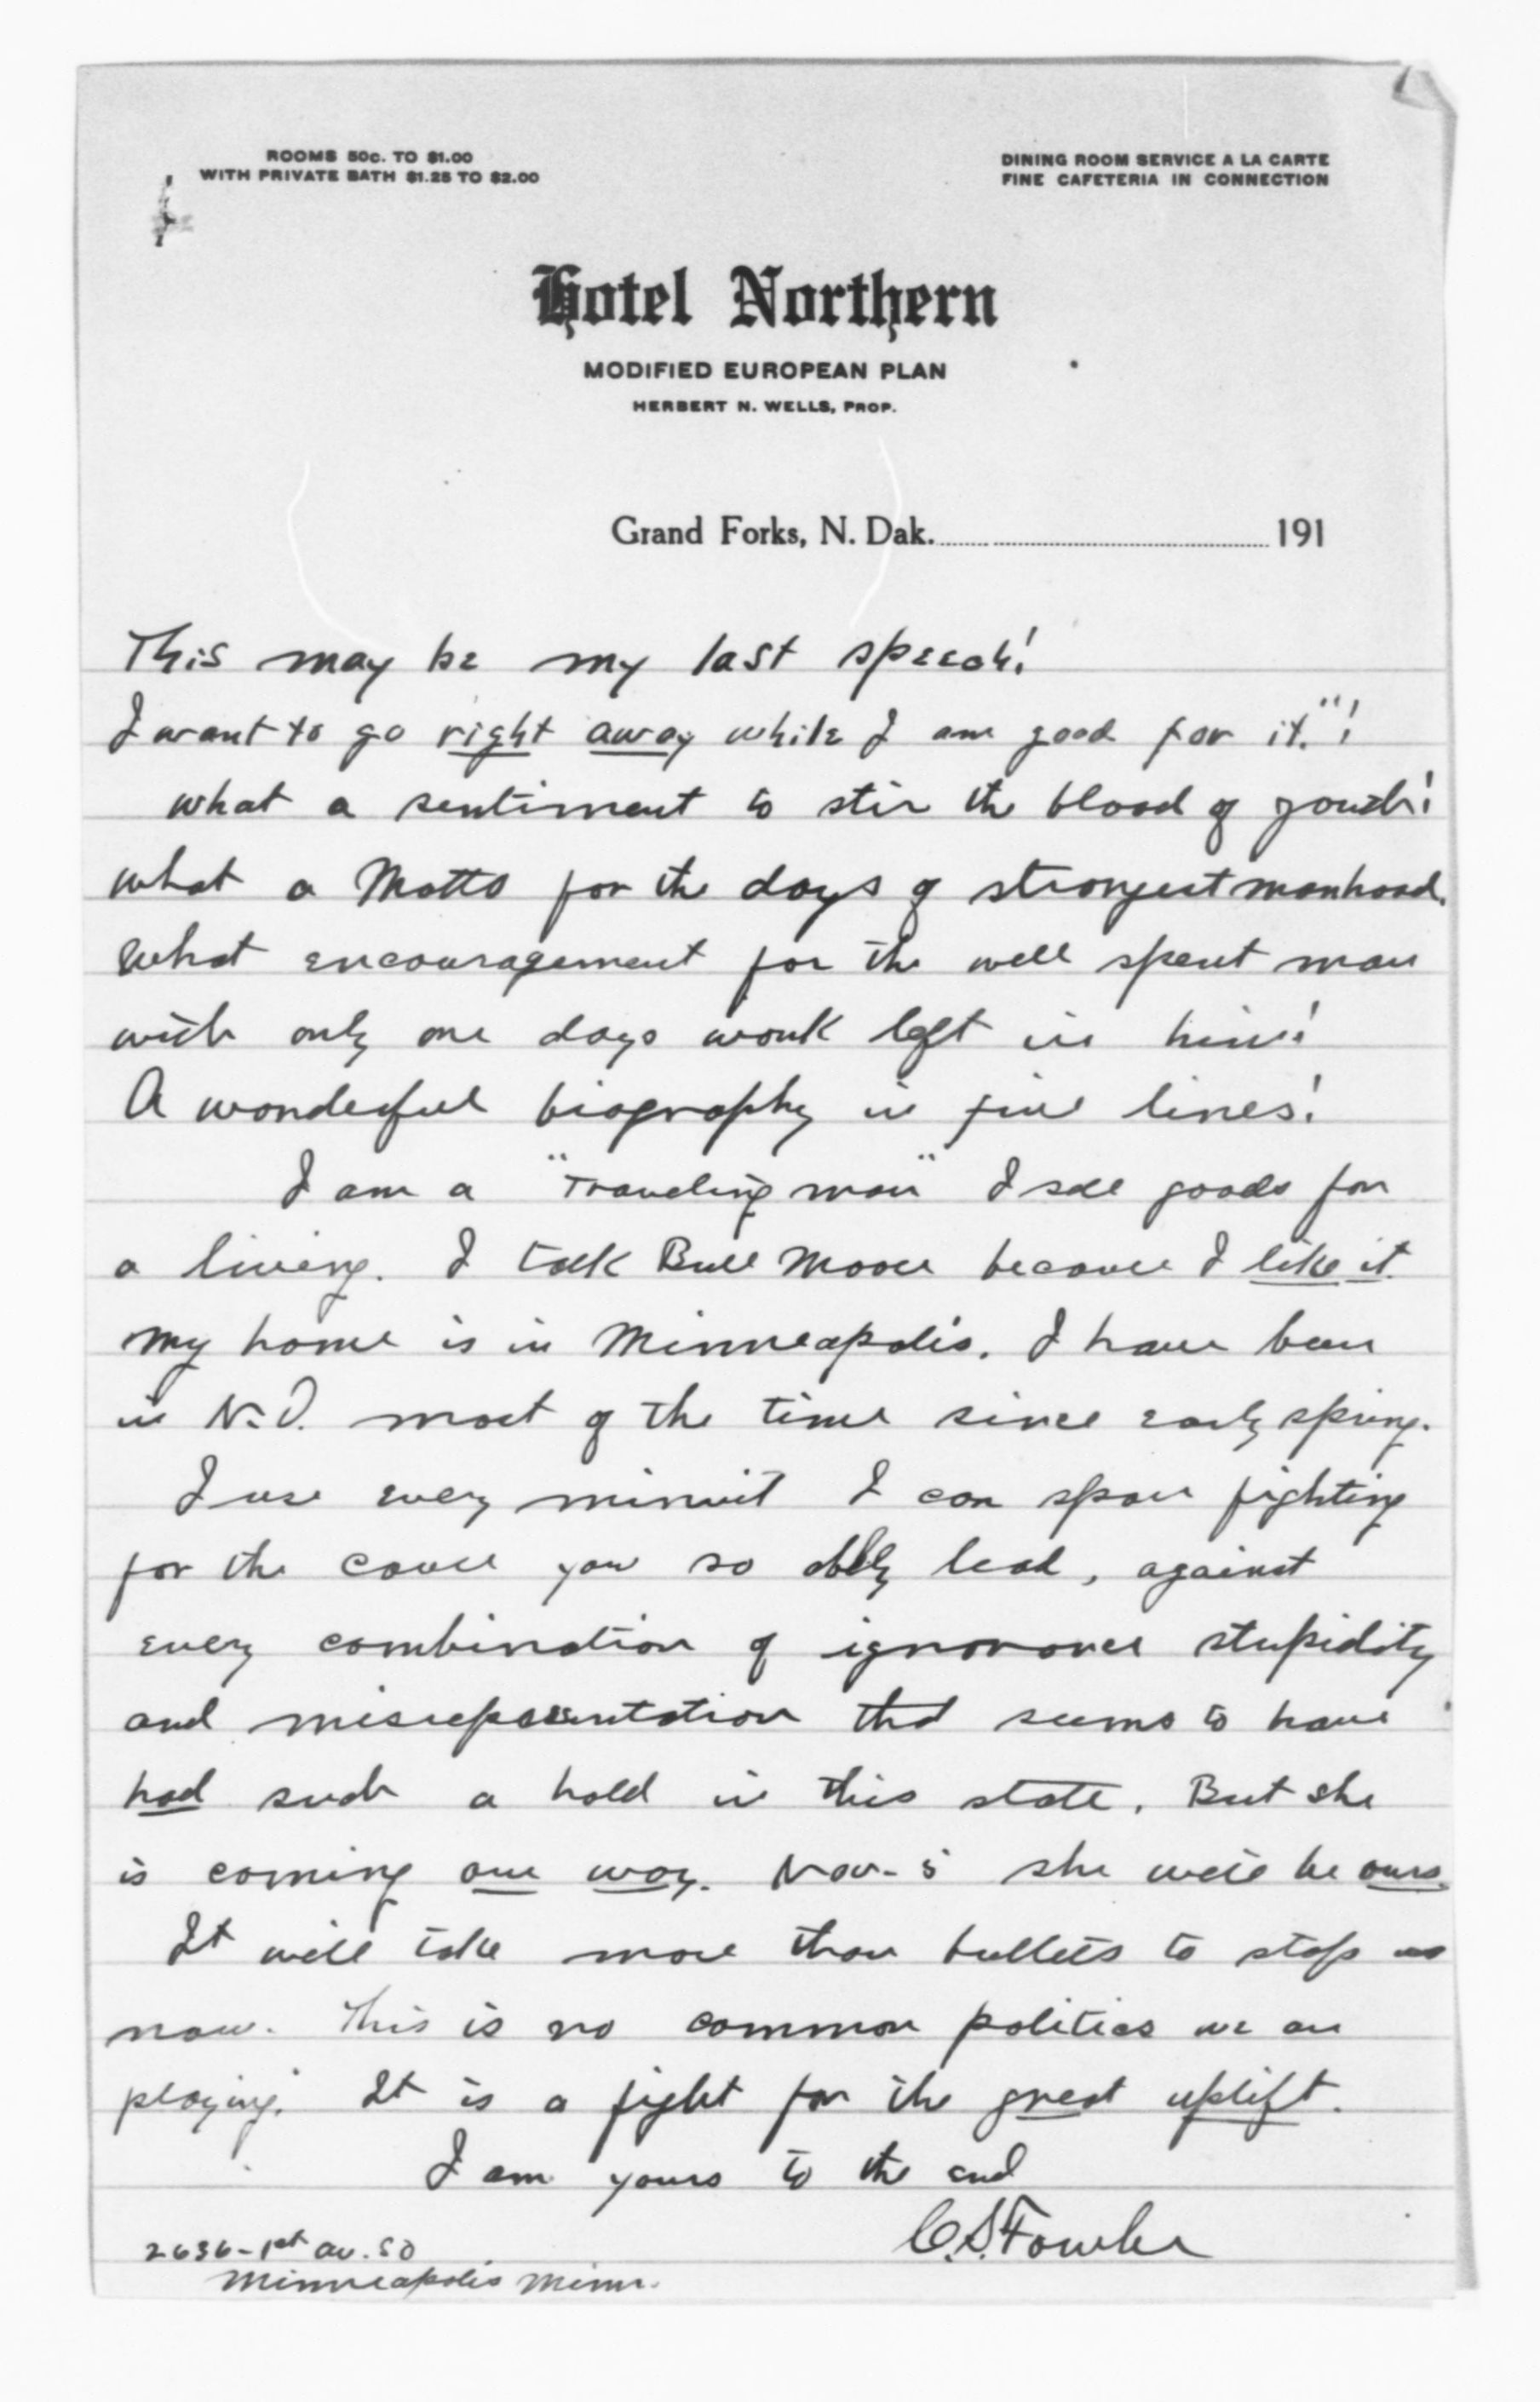 ROOMS 50c. TO $1.00
WITH PRIVATE BATH $1.25 TO $2.00
DINING ROOM SERVICE A LA CARTE
FINE CAFETERIA IN CONNECTION
Hotel Northern
MODIFIED EUROPEAN PLAN
HERBERT N. WELLS, PROP.
Grand Forks, N. Dak. 191
This may be my last speech!
I want to go right away while I am good for it."!
what a sentiment to stir the blood of youth!
what a Motto for the days of strongest manhood.
What encouragement for the well spent man
with only one days work left in him!
A wonderful biography in five lines!
I am a "Traveling man" I sell goods for
a living. I talk Bull Moose because I like it.
My home is in Minneapolis. I have been
in N.D. most of the time since early spring.
I use every minuit I can spare fighting
for the cause you so ably lead, against
every combination of ignorance stupidity
and misrepresentation that seems to have
had such a hold in this state. But she
is coming our way. Nov-5 she will be ours.
It will take more than bullets to stop us
now. This is no common politics we are
playing. It is a fight for the great uplift.
I am yours to the end
C.S. Fowler
2636-1st av. SO
Minneapolis Minn.